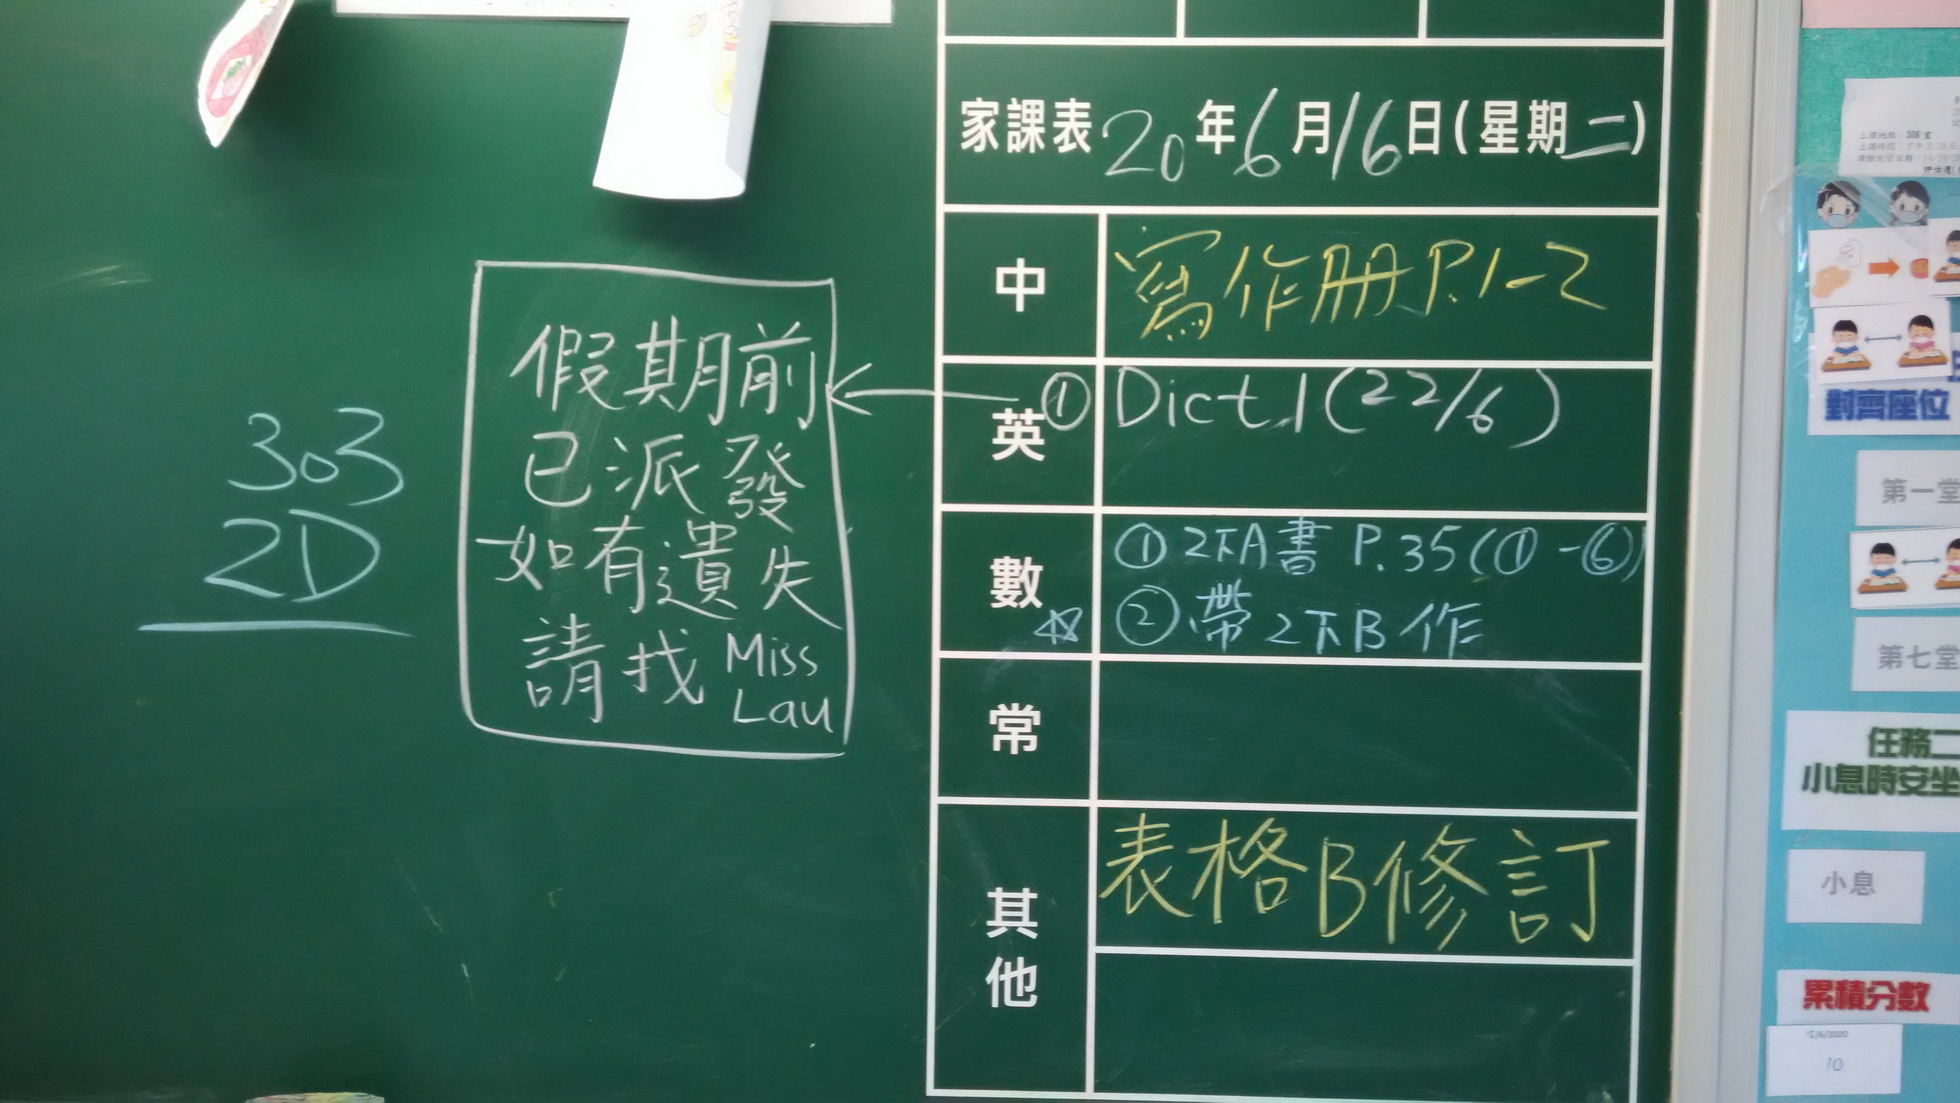 303
2D
假期前
已派發
如有遺失
請找 Miss
Lau
家課表 20年6月16日(星期二)
中 寫作册 P.1-2
英 ① Dict.1(22/6)
數 ① 2下A書 P.35(①-⑥)
☆ ② 帶2下B作
常
其他 表格B修訂
對齊座位
第一堂
第七堂
任務二
小息時安坐
小息
累積分數
15/6/2020
10